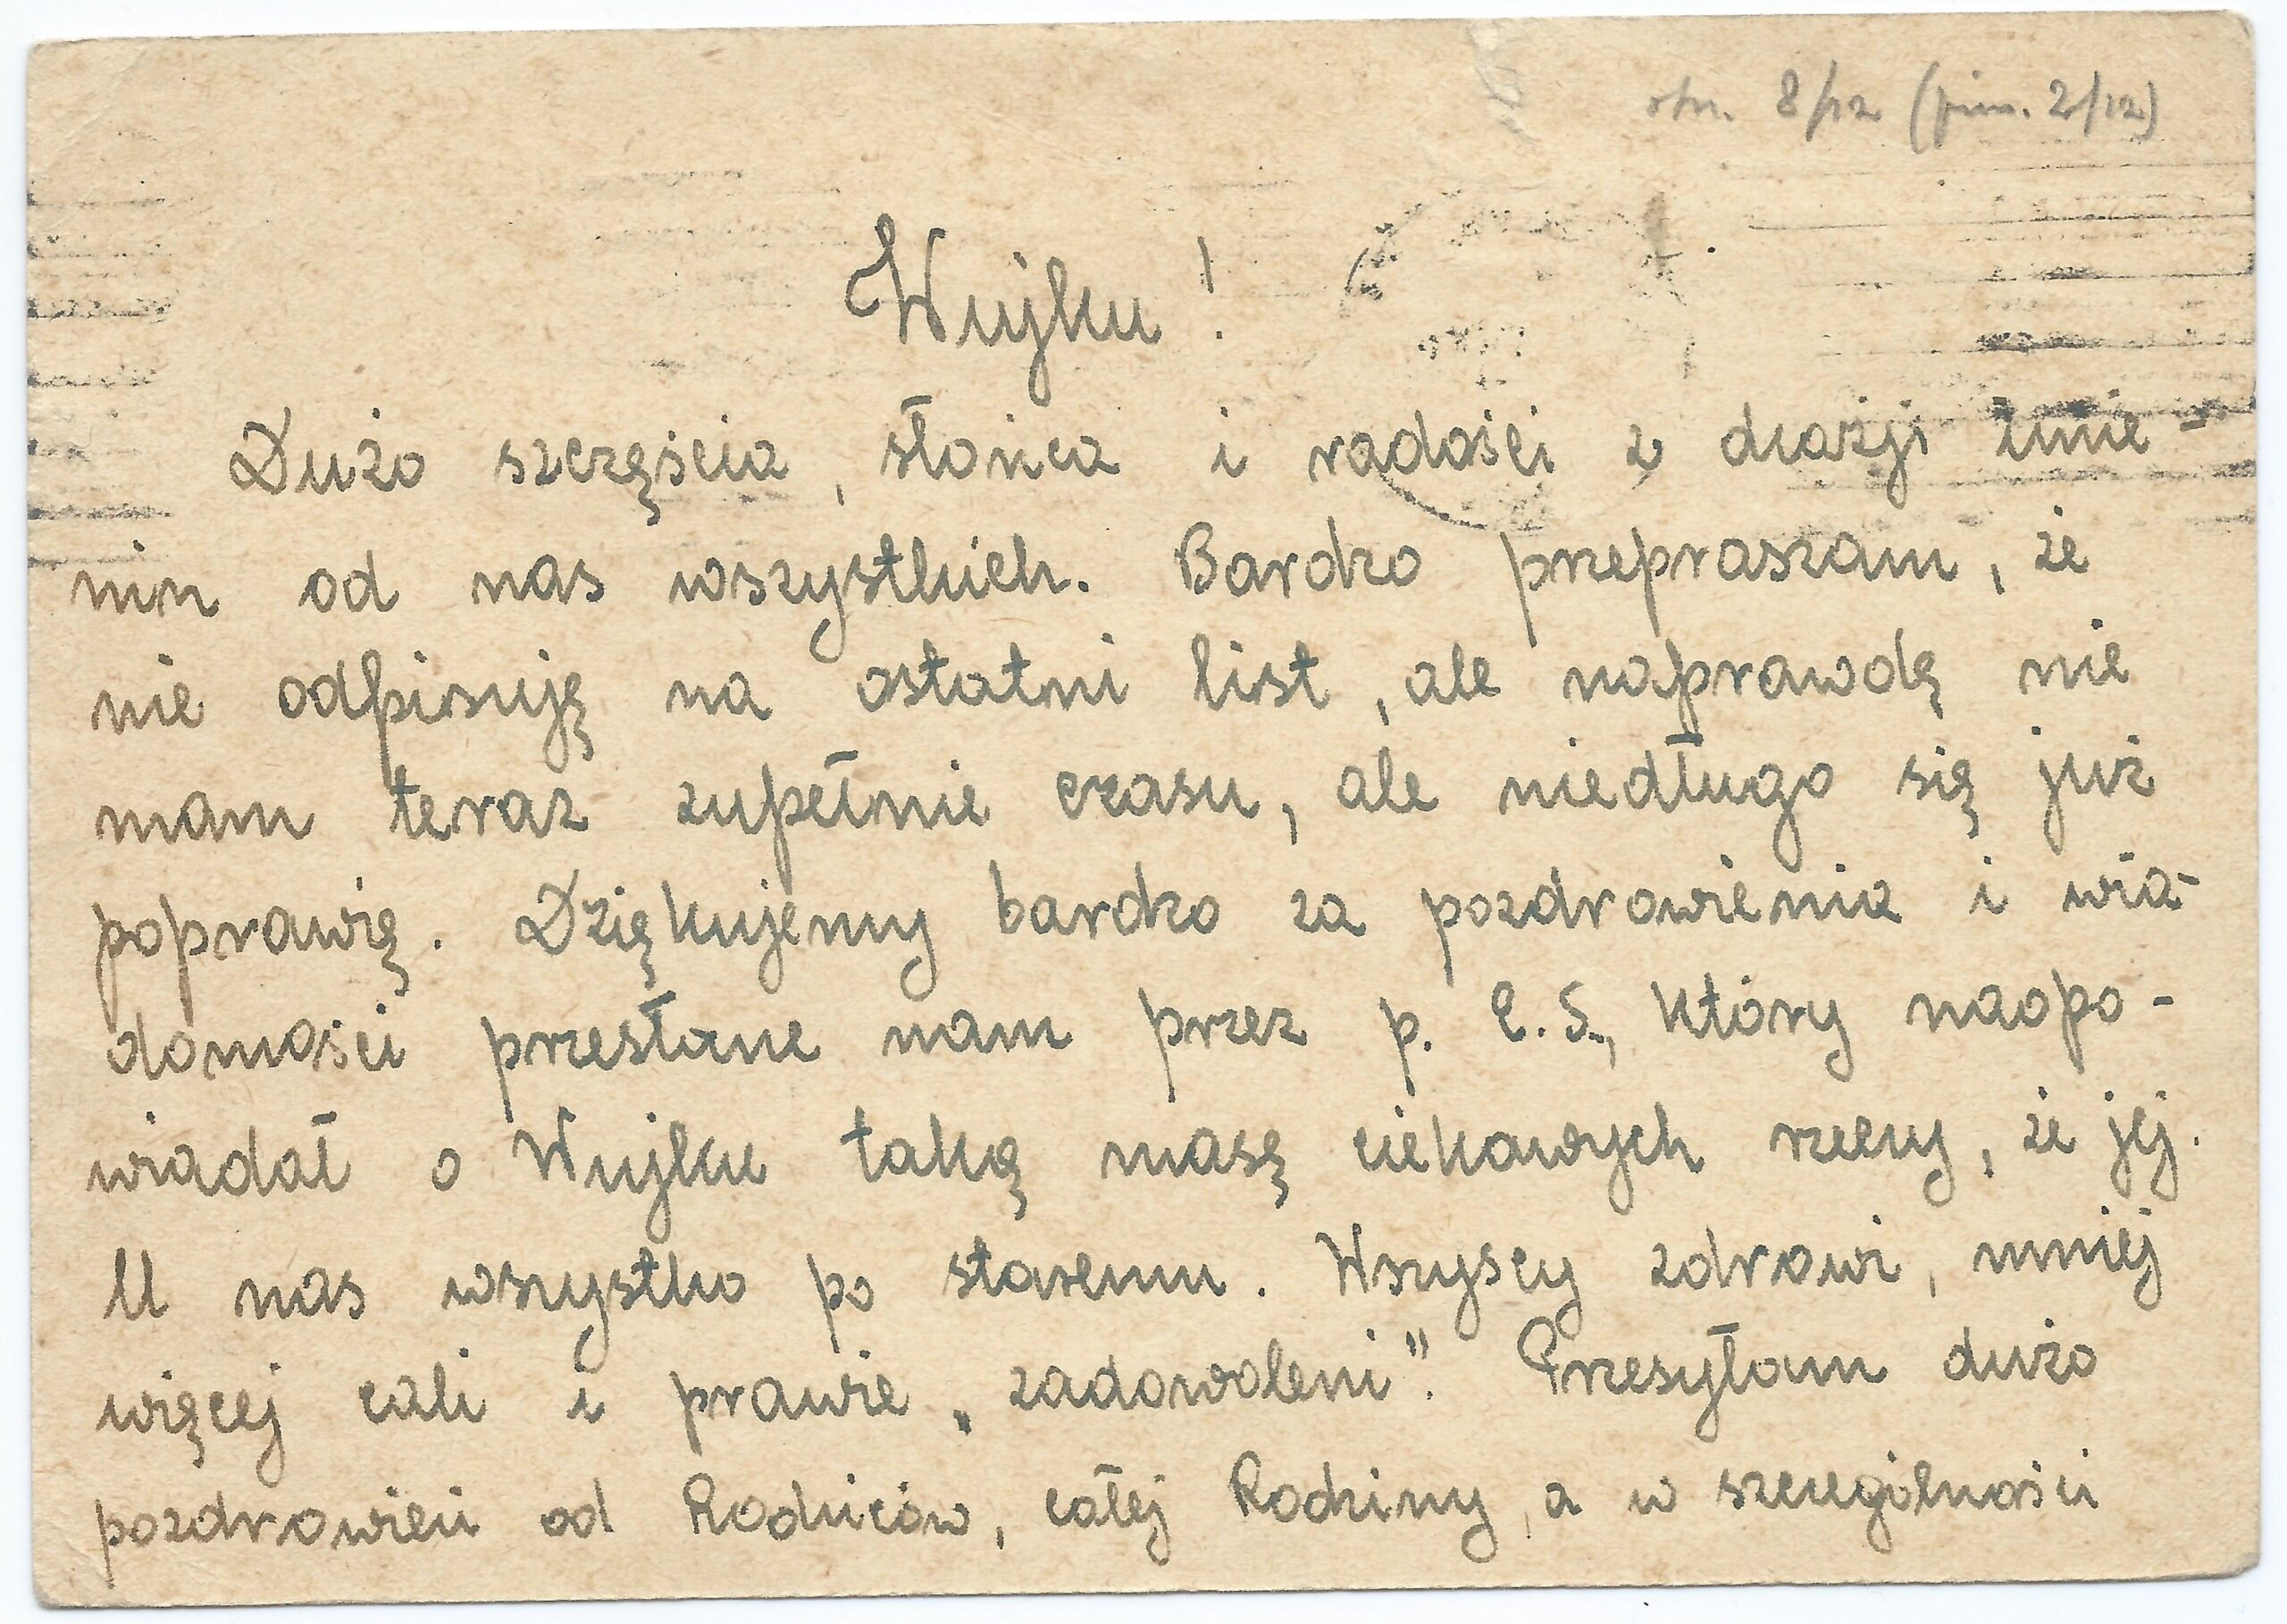 otrz. 8/12 (pism. 2/12)
Wujku!
Dużo szczęścia, słońca i radości z okazji imie-
nin od nas wszystkich. Bardzo przepraszam, że
nie odpisuję na ostatni list, ale naprawdę nie
mam teraz zupełnie czasu, ale niedługo się już
poprawię. Dziękujemy bardzo za pozdrowienia i wia-
domości przesłane nam przez p. E.S., który naopo-
wiadał o Wujku taką masę ciekawych rzeczy, że jej.
U nas wszystko po staremu. Wszyscy zdrowi, mniej
więcej cali i prawie „zadowoleni”. Przesyłam dużo
pozdrowień od Rodziców, całej Rodziny, a w szczególności